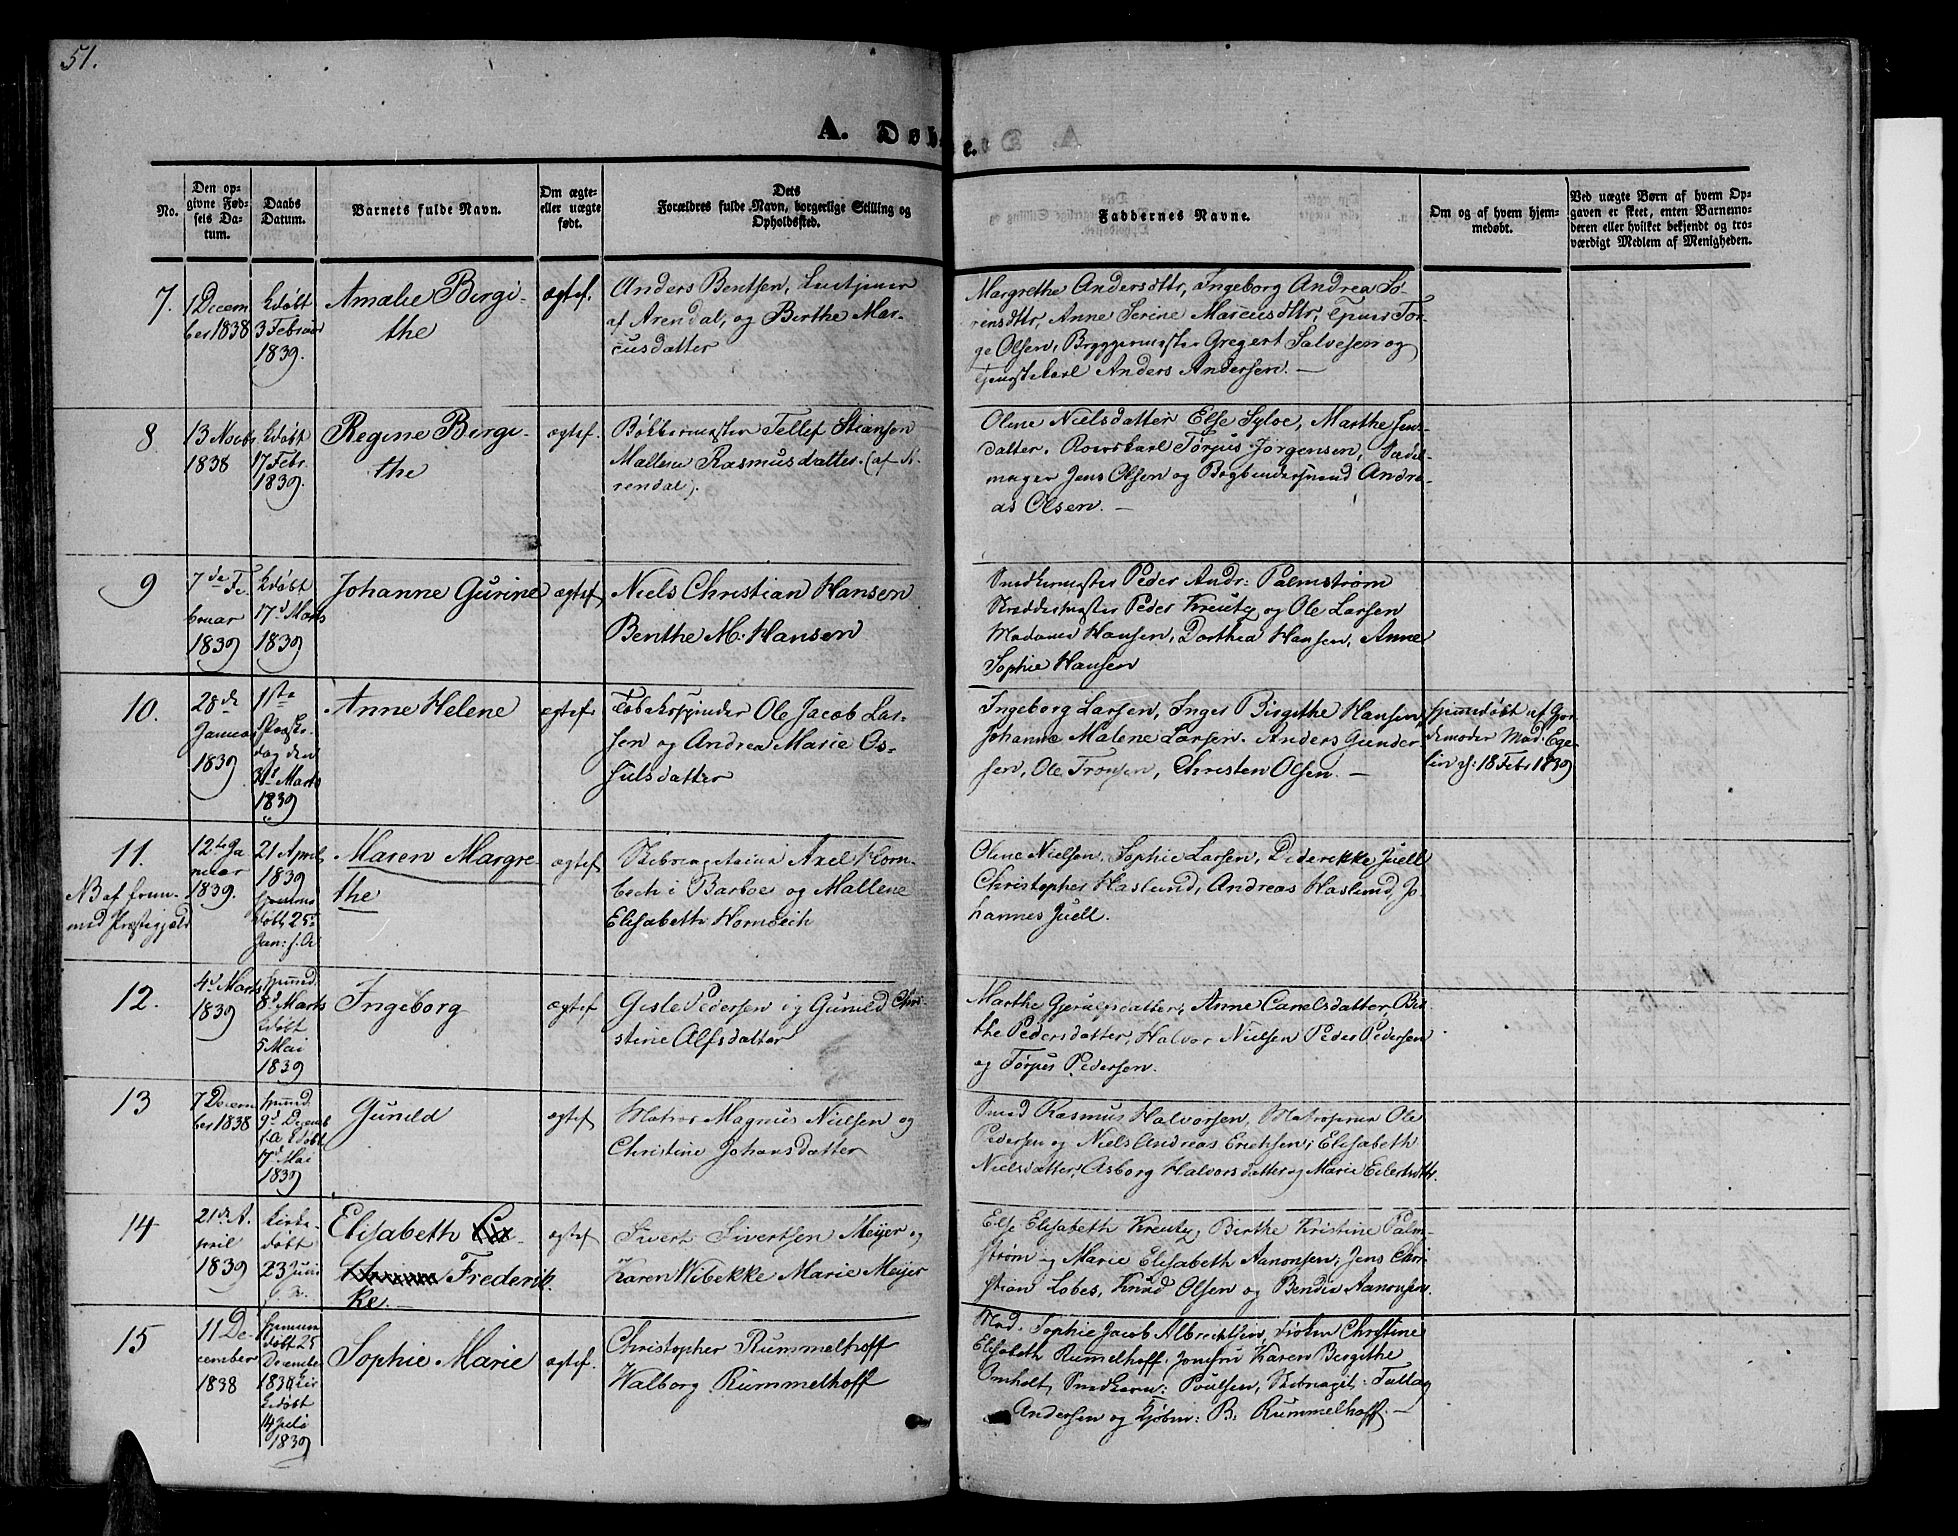 51.
A. Døbte.
No.
Den op-
givne Fød-
sels Da-
tum.
Daabs
Datum.
Barnets fulde Navn.
Om ægte-
eller uægte
født.
Dets
Forældres fulde Navn, borgerlige Stilling og
Opholdssted.
Faddernes Navne.
Om og af hvem hjem-
medøbt.
Ved uægte Børn af hvem Op-
gaven er skeet, enten Barnemo-
deren eller hvilket bekjendt og tro-
værdigt Medlem af Menigheden.
7.
1 Decem
ber 1838
kdøbt
3 Februar
1839.
Amalie Birgi-
the
ægtef.
Anders Bentsen,
af Arendal, og Birthe Mar-
cusdatter
Margrethe Andersdttr, Ingeborg Andrea Sø-
rensdttr, Anne Serine Marcusdttr, Tor-
ge Olsen, Bryggermester Gregert Salvesen og
Tjenestekarl Anders Andersen. —
8
13 Novbr
1838
kdøbt
17 Febr.
1839.
Regine Birgi-
the
ægtef.
Bøkkermester Tellef Stiansen
Mallene Rasmusdatter (af A-
rendal).
Olene Nielsdatter Else Sylve, Marthe Jens-
datter, Torjus Jørgensen, Sadel-
mager Jens Olsen og Bogbindersvend Andre-
as Olsen. —
9
7de Fe-
bruar
1839
kdøbt
17d Marts
1839
Johanne Gurine
ægtef
Niels Christian Hansen
Benthe M. Hansen
Snedkermester Peder Andr: Palmstrøm
Skreddermester Peder Kreutz og Ole Larsen
Madame Hansen, Dorthea Hansen, Anne
Sophie Hansen
10.
28de
Januar
1839
1ste
Paaske-
dag den
31d Marts
1839
Anne Helene
ægtef.
Tobakspinder Ole Jacob Lar-
sen og Andrea Marie Os-
sulsdatter
Ingeborg Larsen, Inger Birgithe Hansen,
Johanne Malene Larsen. Anders Gunder-
sen, Ole Tronsen, Christen Olsen. —
hjemmedøbt af Jor-
demoder Mad. Ege-
lin d: 18 Febr 1839
11.
NB af frem-
med Præstegjæld
12te Ja
nuar
1839.
21 April
1839
hjemme-
døbt 25d
Jan: s. A
Maren Margre-
the
ægtef
Axel Horn-
bech i Barboe og Mallene
Elisabeth Hornbech
Olene Nielsen, Sophie Larsen, Diderikke Juell
Christopher Haslund, Andreas Haslund, Jo
hannes Juell.
12.
4d Marts
1839
hjemmd.
8d Marts
kdøbt
5 Mai
1839
Ingeborg
ægtef
Gisle Pedersen og Gunild Chri-
stine Alfsdatter
Marthe Gjerulfsdatter, Anne Carelsdatter, Bir-
the Pedersdatter, Halvor Nielsen Peder Pedersen
og Torjus Pedersen.
13
7 Decem
ber 1838
hjemmd.
9d Decemb
s. A kdøbt
17d Mai
1839
Gunild
ægtef
Matros Magnus Nielsen og
Christine Johansdatter
Smed Rasmus Halvorsen, Matroserne Ole
Pedersen og Niels Andreas Erichsen, Elisabeth
Nielsdatter, Asborg Halvorsdatter og Marie Eilertsdttr.
14
21de A-
pril
1839
kirke-
døbt
23 Juni
s. A.
Elisabeth
Frederik-
ke.
ægtef
Sivert Sivertsen Meijer og
Karen Wibekke Marie Meijer
Else Elisabeth Kreutz, Birthe Kristine Palm-
strøm og Marie Elisabeth Aanonsen, Jens Chri-
stian Lobes, Knud Olsen og Bendix Aanonsen.
15
11 De-
cember
1838
hjemme-
døbt 25
December
1838 kir
kedøbt
14 Juli
1839
Sophie Marie
ægtef.
Christopher Rummelhoff
Walborg Rummelhoff
Mad. Sophie Jacob Albrechtsen, Frøken Christine
Elisabeth Rummelhoff, Jomfru Karen Birgithe
Omholt, Snedkerm: Poulsen,
Andersen og Kjøbm: B: Rummelhoff. —